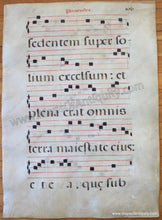 sedentem super so⸗
lium excelsum: et
plena erat omnis
terra maiestate eius:
e t e a, quę sub